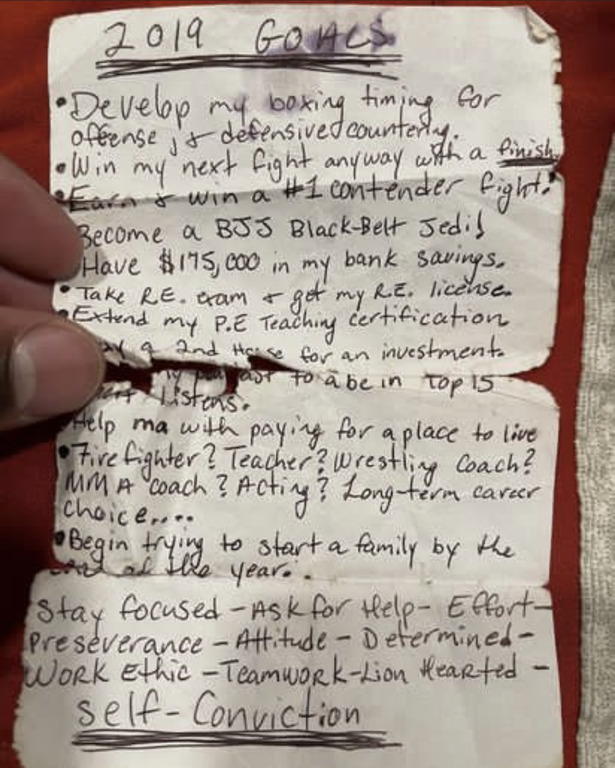 2019 GOALS
• Develop my boxing timing for
offense & defensive countering.
• Win my next fight anyway with a finish
• Earn & win a #1 contender fight!
Become a BJJ Black-Belt Jedi!
Have $175,000 in my bank savings.
• Take R.E. exam & get my R.E. license.
• Extend my P.E Teaching certification
a 2nd House for an investment.
to a be in Top 15
Listens.
Help ma with paying for a place to live
• Firefighter? Teacher? Wrestling Coach?
MMA coach? Acting? Long-term career
choice....
• Begin trying to start a family by the
end of the year.
Stay focused - Ask for Help - Effort -
Preseverance - Attitude - Determined -
Work Ethic - Teamwork - Lion Hearted -
Self-Conviction